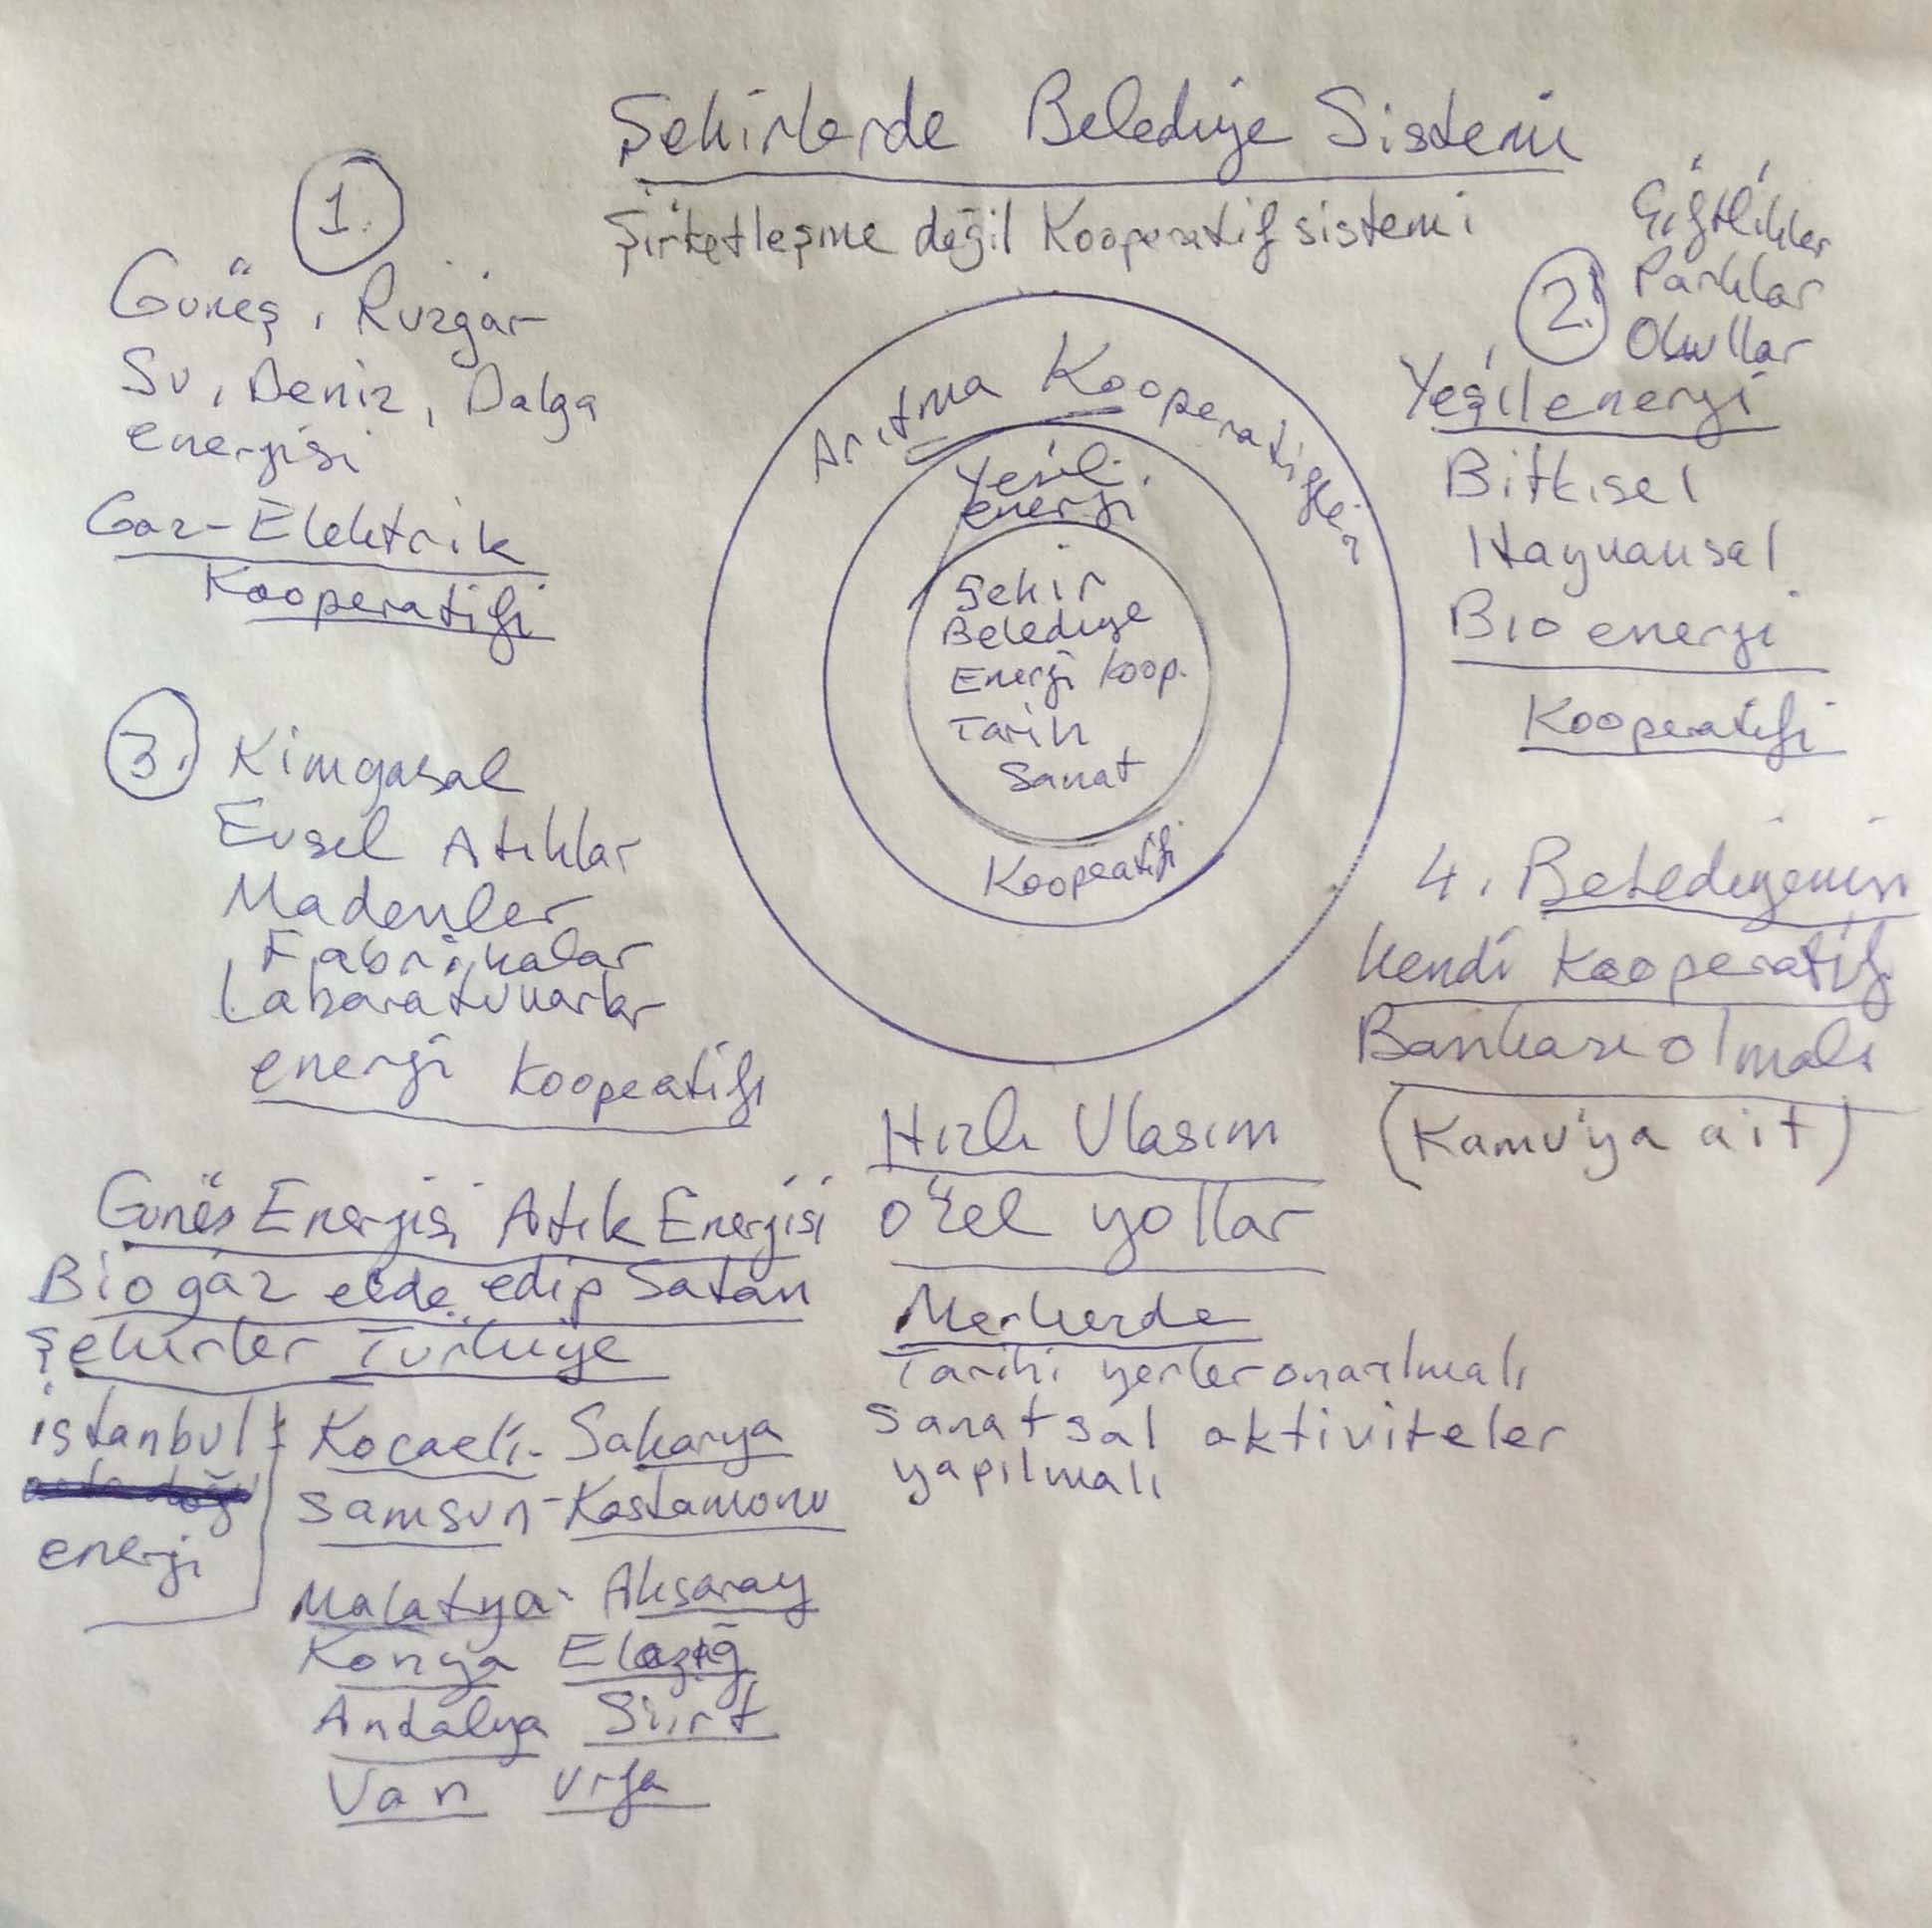 Şehirlerde Belediye Sistemi
Şirketleşme değil Kooperatif sistemi
1.
Güneş, Ruzgar
Su, Deniz, Dalga
energisi
Gaz-Elektrik
Kooperatifi
2.
Çiftlikler
Parklar
Okullar
Yeşil energi
Bitkisel
Hayvansal
Bio energi
Kooperatifi
Arıtma Kooperatifleri
Yeşil
energi
Şehir
Belediye
Energi koop.
Tarih
Sanat
Koopeatifi
3. Kimyasal
Evsel Atıklar
Madenler
Fabrikalar
Labaratuvarlar
energi koopeatifi
4. Belediyenin
kendi kooperatif
Bankası olmalı
(Kamu'ya ait)
Hızlı Ulasım
özel yollar
Merkezde
Tarihi yerler onarılmalı
sanatsal aktiviteler
yapılmalı
Günes Energisi Atık Energisi
Biogaz elde edip Satan
Şehirler Türkiye
istanbul
energi
Kocaeli - Sakarya
Samsun - Kastamonu
Malatya - Aksaray
Konya Elazığ
Antalya Siirt
Van Urfa